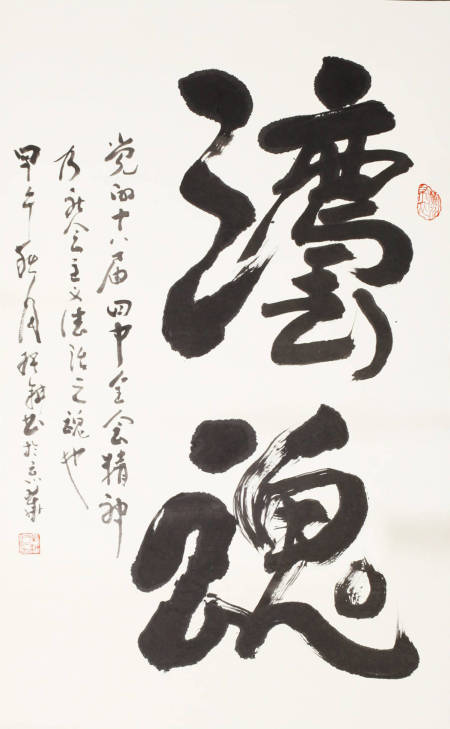 灋魂
党的十八届四中全会精神
乃社会主义法治之魂也
甲午秋月 书於京華